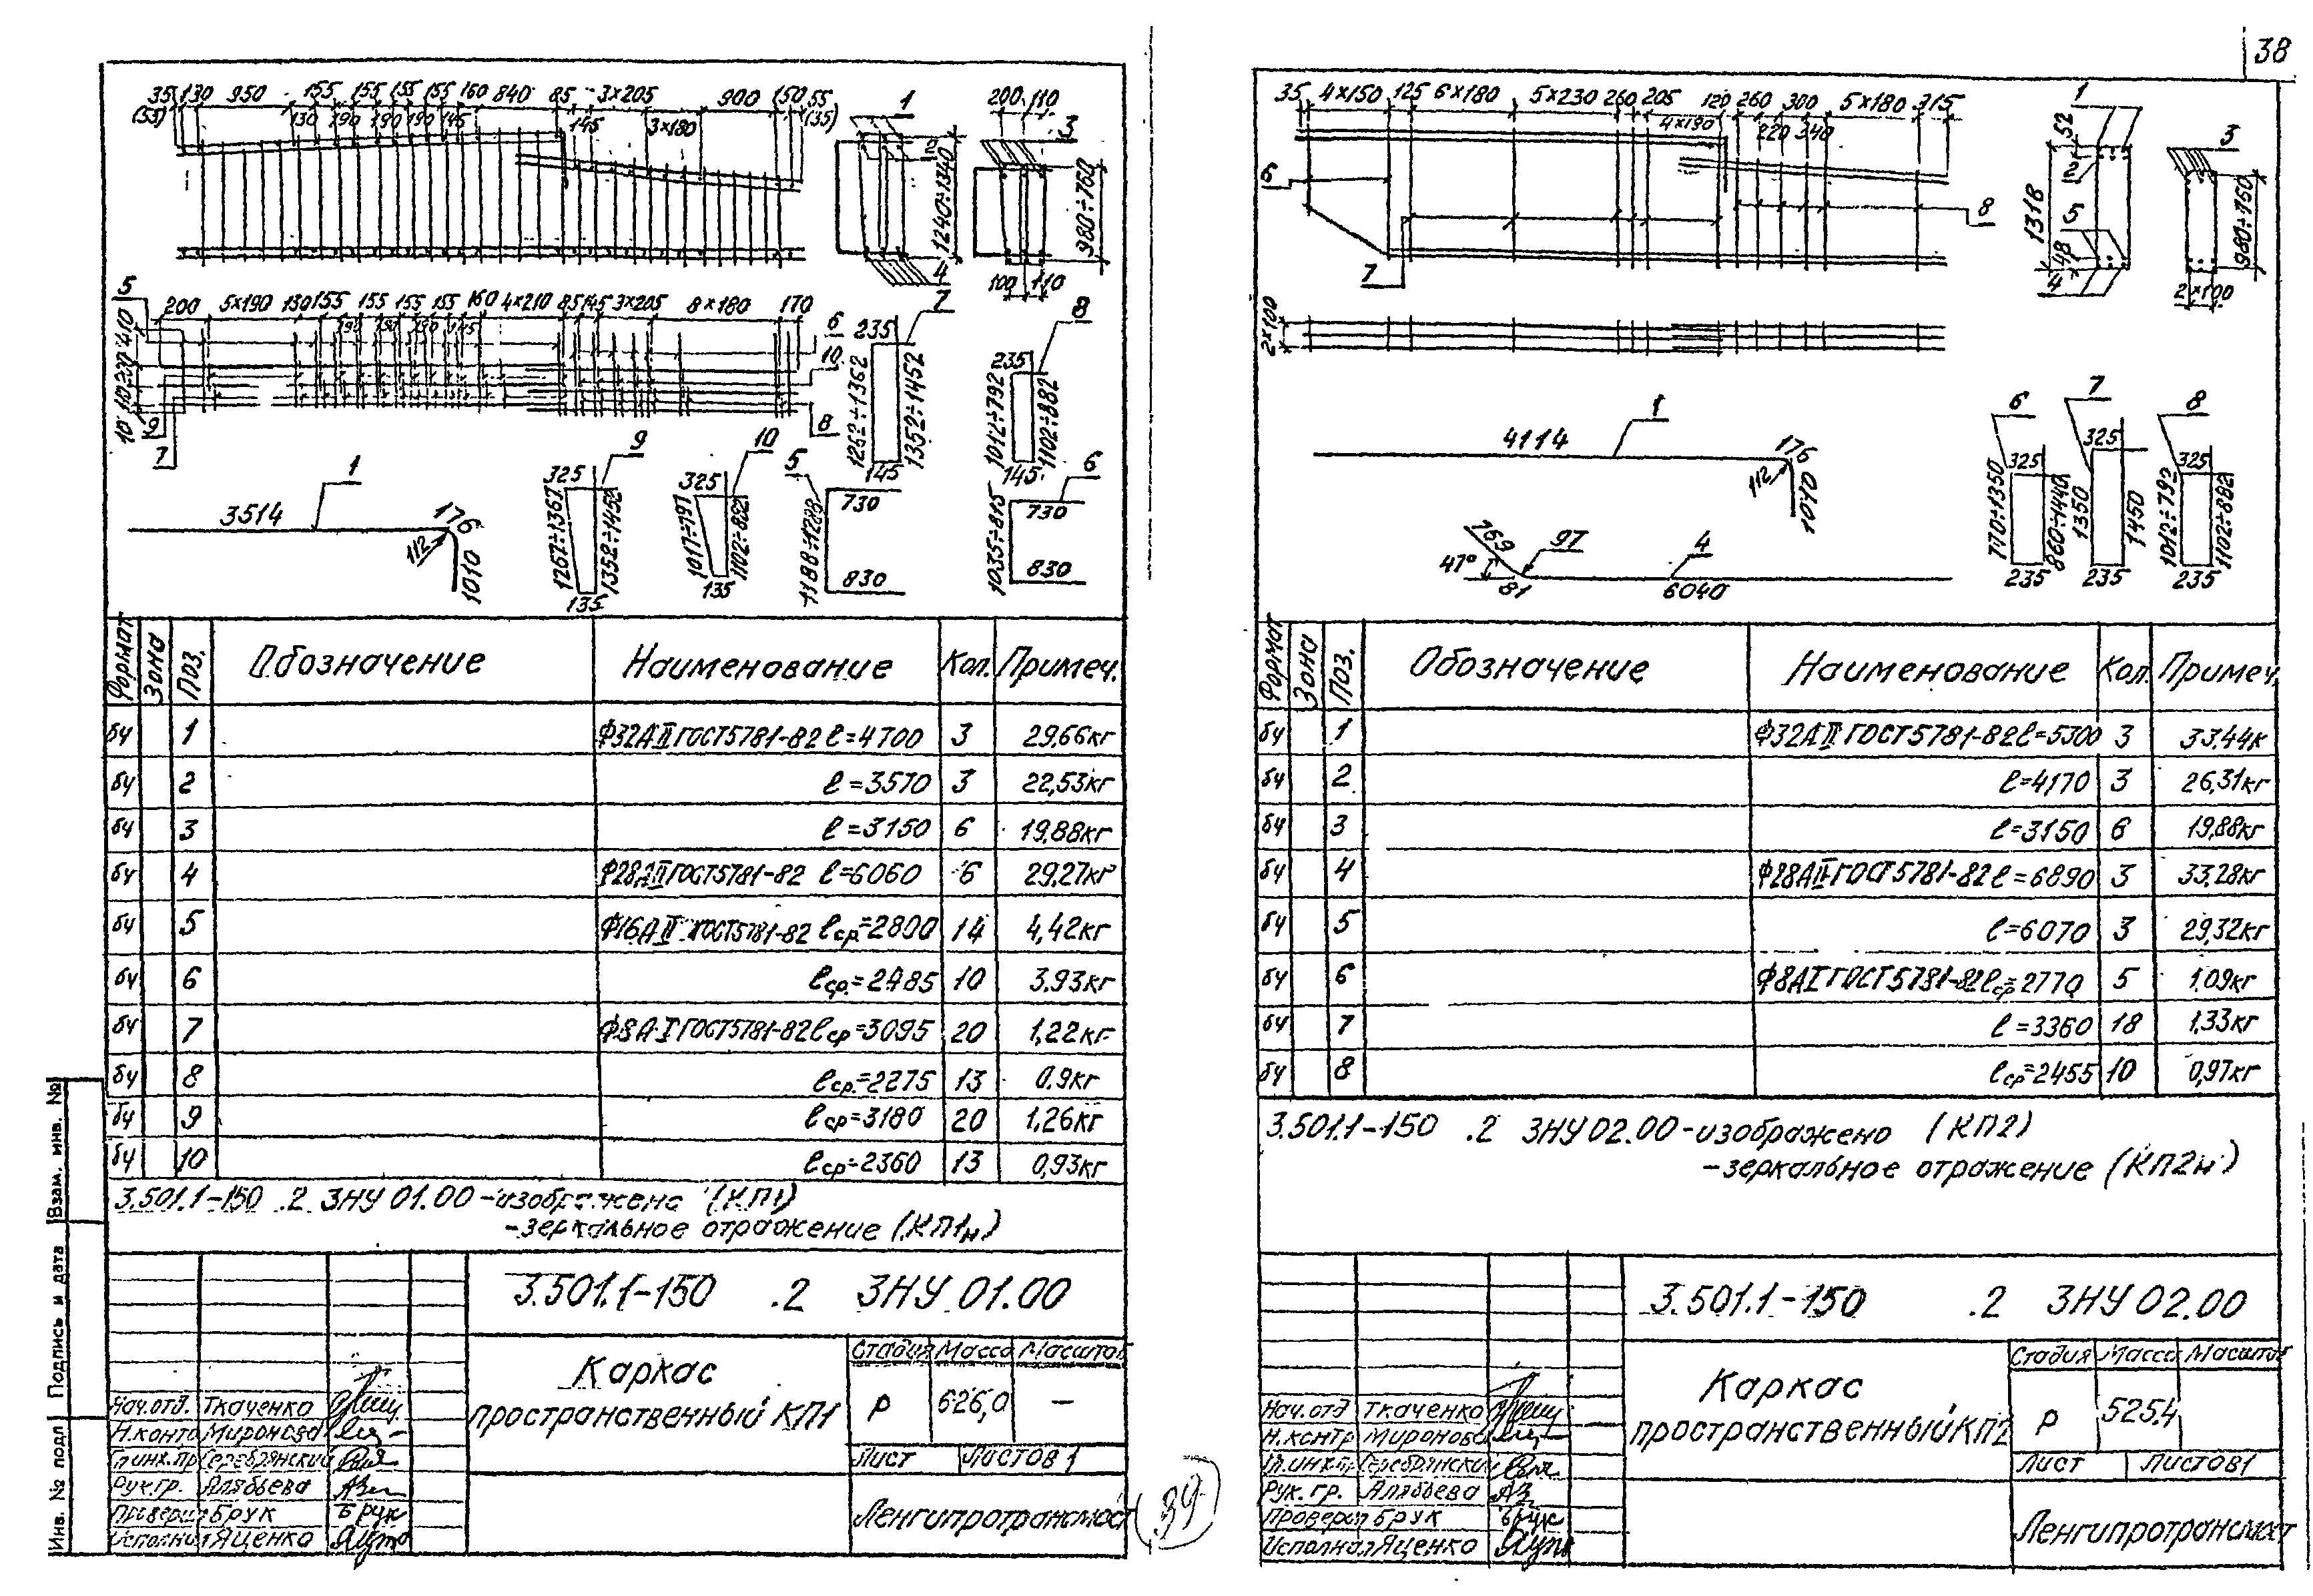 38
35 130 950 155 155 155 155 160 840 85 3×205 900 150 55
(33) 130 190 190 190 145 145 3×180 (35)
1
2
1240÷1340
4
200 110
3
980÷760
100 110
5
200 5×190 130 155 155 155 155 160 4×210 85 145 3×205 8×180 170
6
10
8
9
7
235
7
1262÷1362
1352÷1452
145
235
8
1012÷792
1102÷882
145
3514
1
176
112
1010
325
9
1267÷1367
1352÷1452
135
325
10
1017÷797
1102÷882
135
5
730
1188÷1288
830
6
730
1035÷815
830
Формат Зона Поз. Обозначение Наименование Кол. Примеч.
бч 1 Ф32АII ГОСТ5781-82 ℓ=4700 3 29,66кг
бч 2 ℓ=3570 3 22,53кг
бч 3 ℓ=3150 6 19,88кг
бч 4 Ф28АII ГОСТ5781-82 ℓ=6060 6 29,27кг
бч 5 Ф16АII ГОСТ5781-82 ℓср.=2800 14 4,42кг
бч 6 ℓср.=2485 10 3,93кг
бч 7 Ф8А-I ГОСТ5781-82 ℓср=3095 20 1,22кг
бч 8 ℓср.=2275 13 0.9кг
бч 9 ℓср=3180 20 1,26кг
бч 10 ℓср=2360 13 0,93кг
3.501.1-150 .2 3НУ 01.00 -изображено (КП1)
-зеркальное отражение (КП1н)
3.501.1-150 .2 3НУ 01.00
Каркас
пространственный КП1
Стадия Масса Масштаб
Р 626,0 —
Лист Листов 1
Нач.отд. Ткаченко
Н.контр Миронова
Гл.инж.пр Серебрянский
Рук.гр. Алябьева
Проверил Брук
Исполнил Яценко
Ленгипротрансмост
39
Инв. № подл Подпись и дата Взам. инв. №
35 4×150 125 6×180 5×230 260 205 120 260 300 5×180 315
4×190 220 340
6
8
7
2×100
1
52
2
1318
5
48
4
3
980÷760
2×100
4114
1
176
112
1010
769
97
47°
81
4
6040
6
325
770÷1350
860÷1440
235
7
325
1350
1450
235
8
325
1012÷792
1102÷882
235
Формат Зона Поз. Обозначение Наименование Кол. Примеч.
бч 1 Ф32АII ГОСТ5781-82 ℓ=5300 3 33,44к
бч 2 ℓ=4170 3 26,31кг
бч 3 ℓ=3150 6 19,88кг
бч 4 Ф28АII ГОСТ5781-82 ℓ=6890 3 33,28кг
бч 5 ℓ=6070 3 29,32кг
бч 6 Ф8АI ГОСТ5781-82 ℓср=2770 5 1,09кг
бч 7 ℓ=3360 18 1,33кг
бч 8 ℓср=2455 10 0,97кг
3.501.1-150 .2 3НУ 02.00 -изображено (КП2)
-зеркальное отражение (КП2н)
3.501.1-150 .2 3НУ 02.00
Каркас
пространственный КП2
Стадия Масса Масштаб
Р 525,4
Лист Листов 1
Нач.отд Ткаченко
Н.контр Миронова
Гл.инж.пр Серебрянский
Рук.гр. Алябьева
Проверил Брук
Исполнил Яценко
Ленгипротрансмост